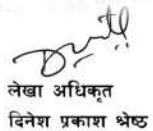 लेखा अधिकृत
दिनेश प्रकाश श्रेष्ठ